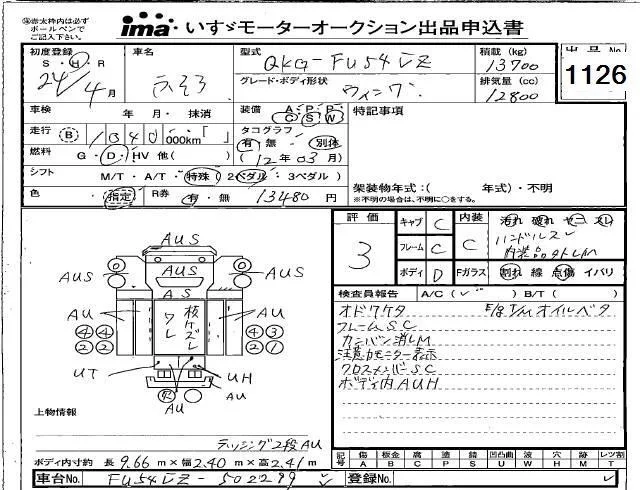 ㊟赤太枠内は必ず
ボールペンで
ご記入下さい。
ima いすゞモーターオークション出品申込書
初度登録 車名 型式 QKG-FU54VZ 積載 (kg) 13700 出品No.
S・H・R 24/4月 ふそう グレード・ボディ形状 ウィング 排気量 (cc) 12800 1126
車検 年 月・抹消 装備 A P P C S W 特記事項
走行 B 1340 000km「 」 タコグラフ 有・無 別体
燃料 G・D・HV 他( ) (12年03月)
シフト M/T・A/T・特殊 (2ペダル : 3ペダル) 架装物年式:( 年式)・不明
※不明の場合は、年式に○をする。
色 指定 R券 有・無 13480円
評価 3 キャブ C 内装 C 汚れ 破れ ヤニ スレ
フレーム C ハンドルスレ
内装品タトレM
ボディ D Fガラス 割れ 線 点傷 イバリ
検査員報告 A/C( レ ) B/T( )
オドワケタ E/g T/M オイルベタ
フレームSC
カンバン消しM
注意力モニター表示
クロスメンバSC
ボディ内AUH
AUS
AUS AUS AUS
AS
AU 枝ケズレ ワレ AU
④④ ④③
②② ②①
UT UH
AU AU
上物情報
ラッシング2段AU
ボディ内寸約 長 9.66 m×幅 2.40 m×高 2.41 m
記号 傷A 板金B 腐C 塗P 錆S 凹凸曲U 波W 穴H 跡M レンツ割T
車台No. FU54VZ-502289 登録No.